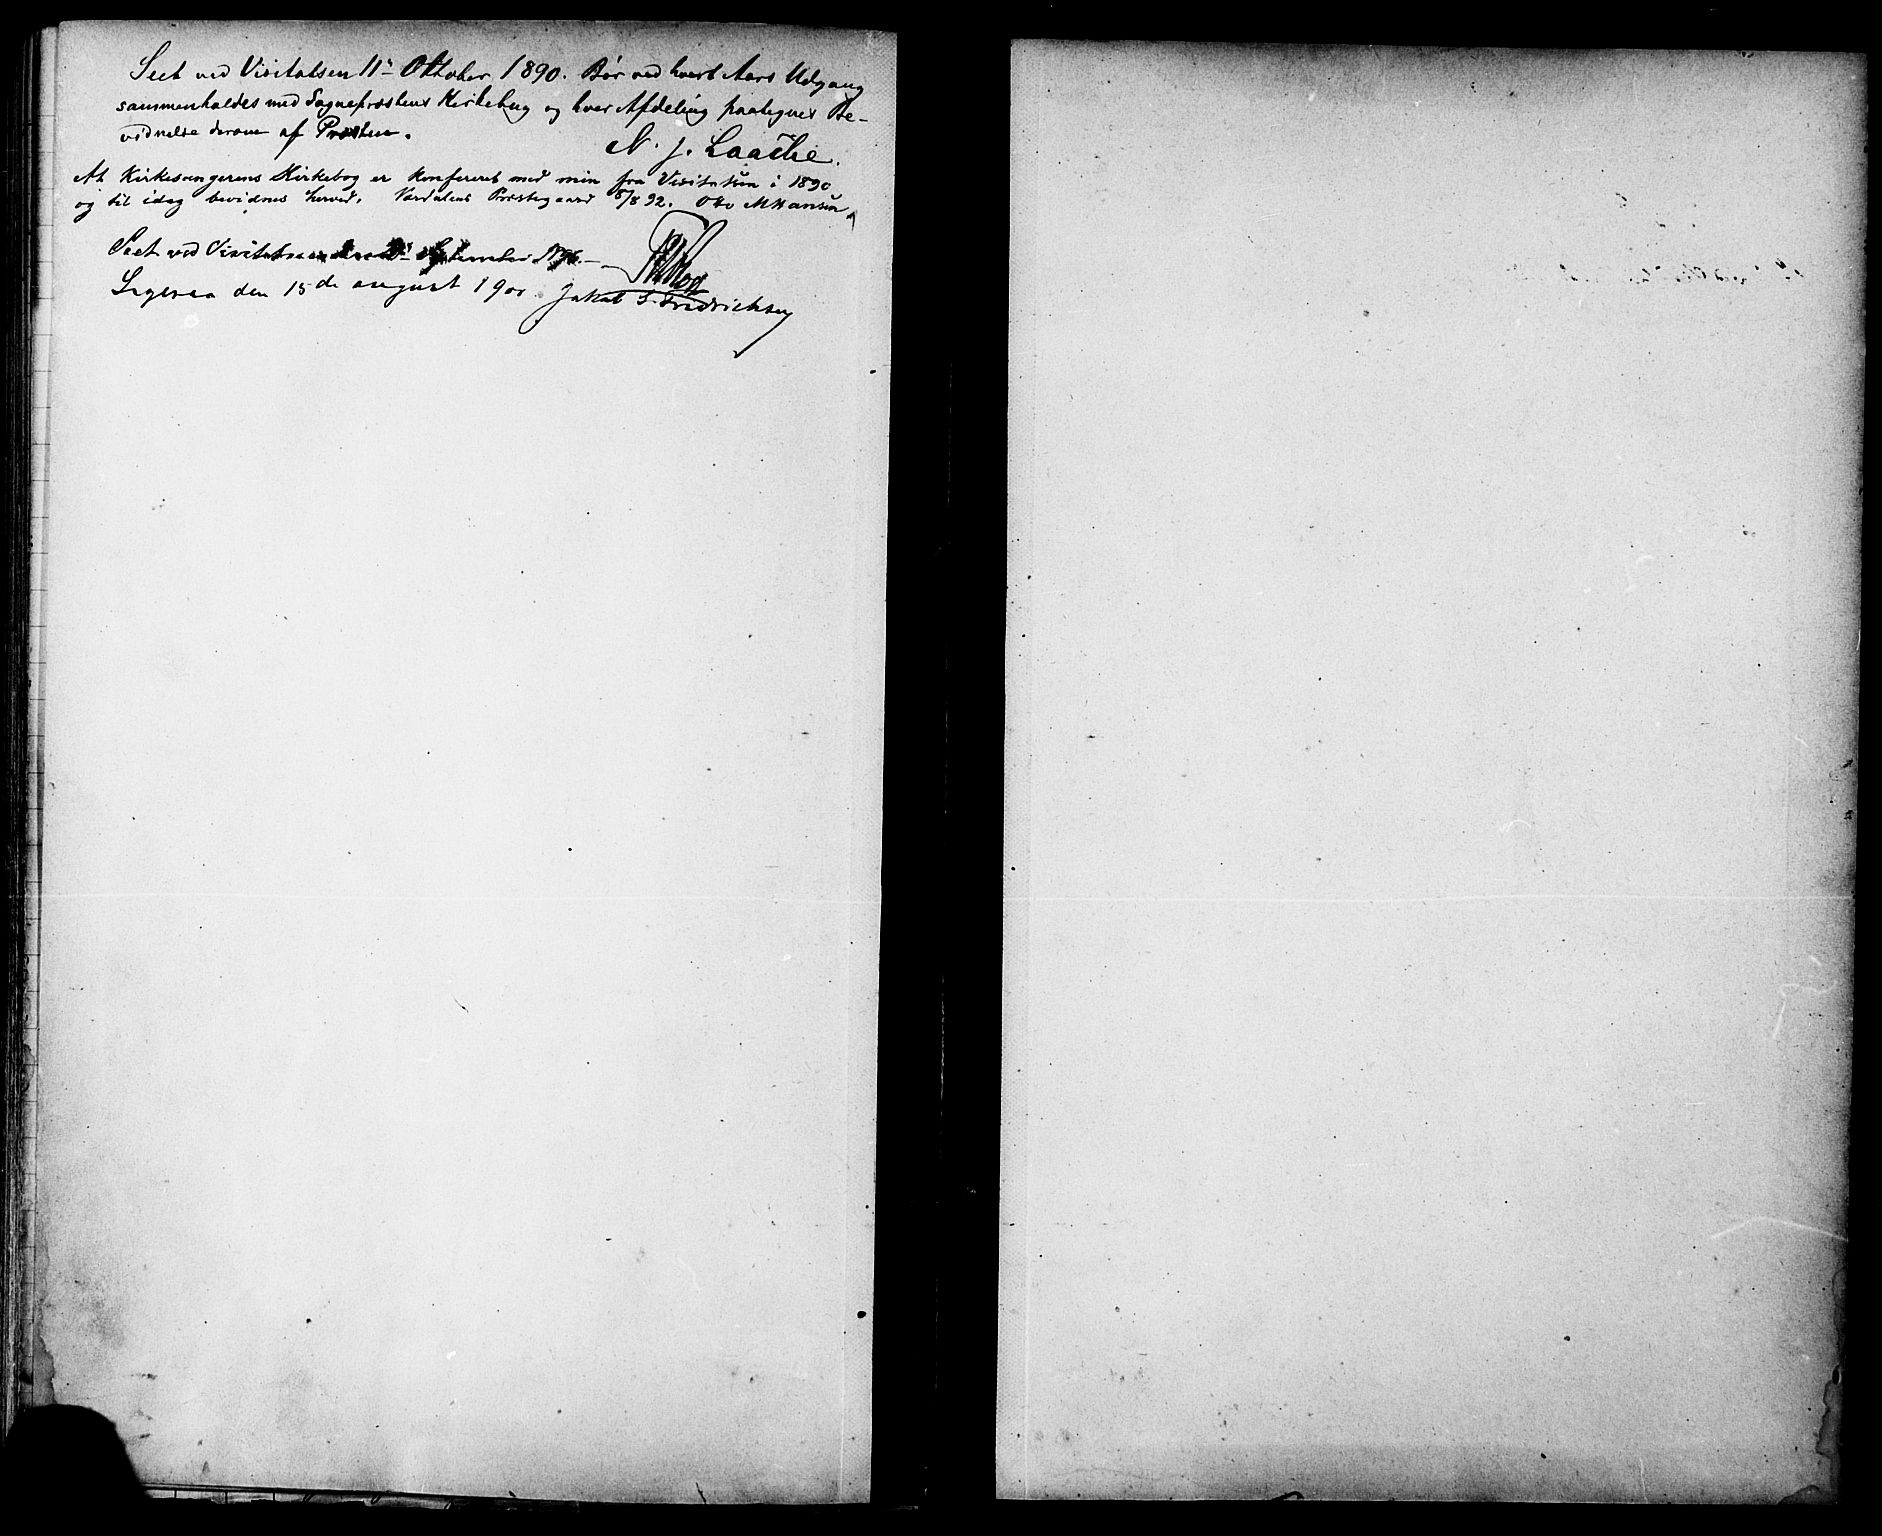 Seet ved Visitatsen 11te Oktober 1890. Bør ved hvert Aars Udgang
sammenholdes med Sognepræstens Kirkebog og hver Afdeling paategnes Be-
vidnelse derom af Præsten.
N. J. Laache.
At Kirkesangerens Kirkebog er konfereret med min fra Visitatsen i 1890
og til idag bevidnes herved. Værdalens Præstegaard 5/8 92. Otto M Hansen
Seet ved Visitatsen den September 1896.
den 15de august 1900. Jakob S. Fredriksen